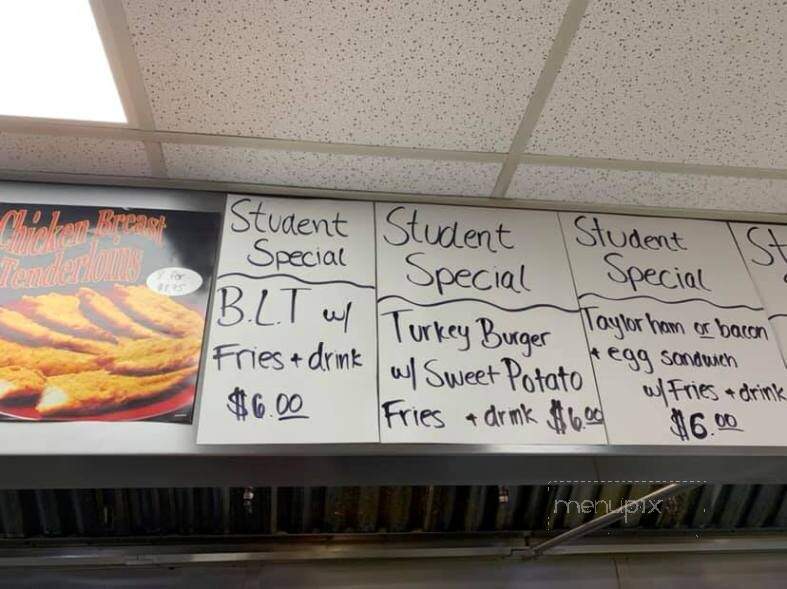 Chicken Breast
Tenderloins
Student
Special
B.L.T w/
Fries + drink
$6.00
Student
Special
Turkey Burger
w/ Sweet Potato
Fries + drink $6.00
Student
Special
Taylor ham or bacon
+ egg sandwich
w/ Fries + drink
$6.00
St
menupix